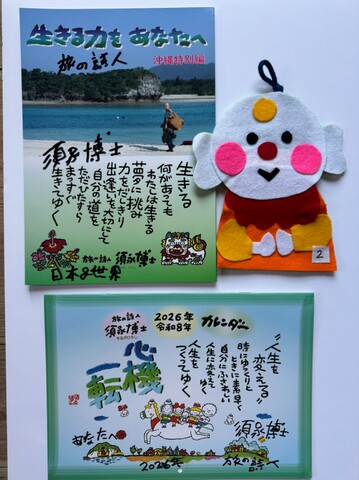 生きる力を あなたへ
旅の詩人
沖縄特別編
須永博士
生きる
何があっても
わたしは生きる
夢に挑み
力をだしきり
出逢いを大切にして
自分の道を
ただひたすら
まっすぐ
生きてゆく
旅の詩人 須永博士
日本&世界
2
旅の詩人
須永博士
2026年
令和8年
カレンダー
心機
一転
"人生を
変える"
時にゆっくりと
ときに素早く
自分にふさわしい
人生に変えて
ゆく
人生を
つくってゆく
須永博士
あなたへ
2026年
旅の詩人